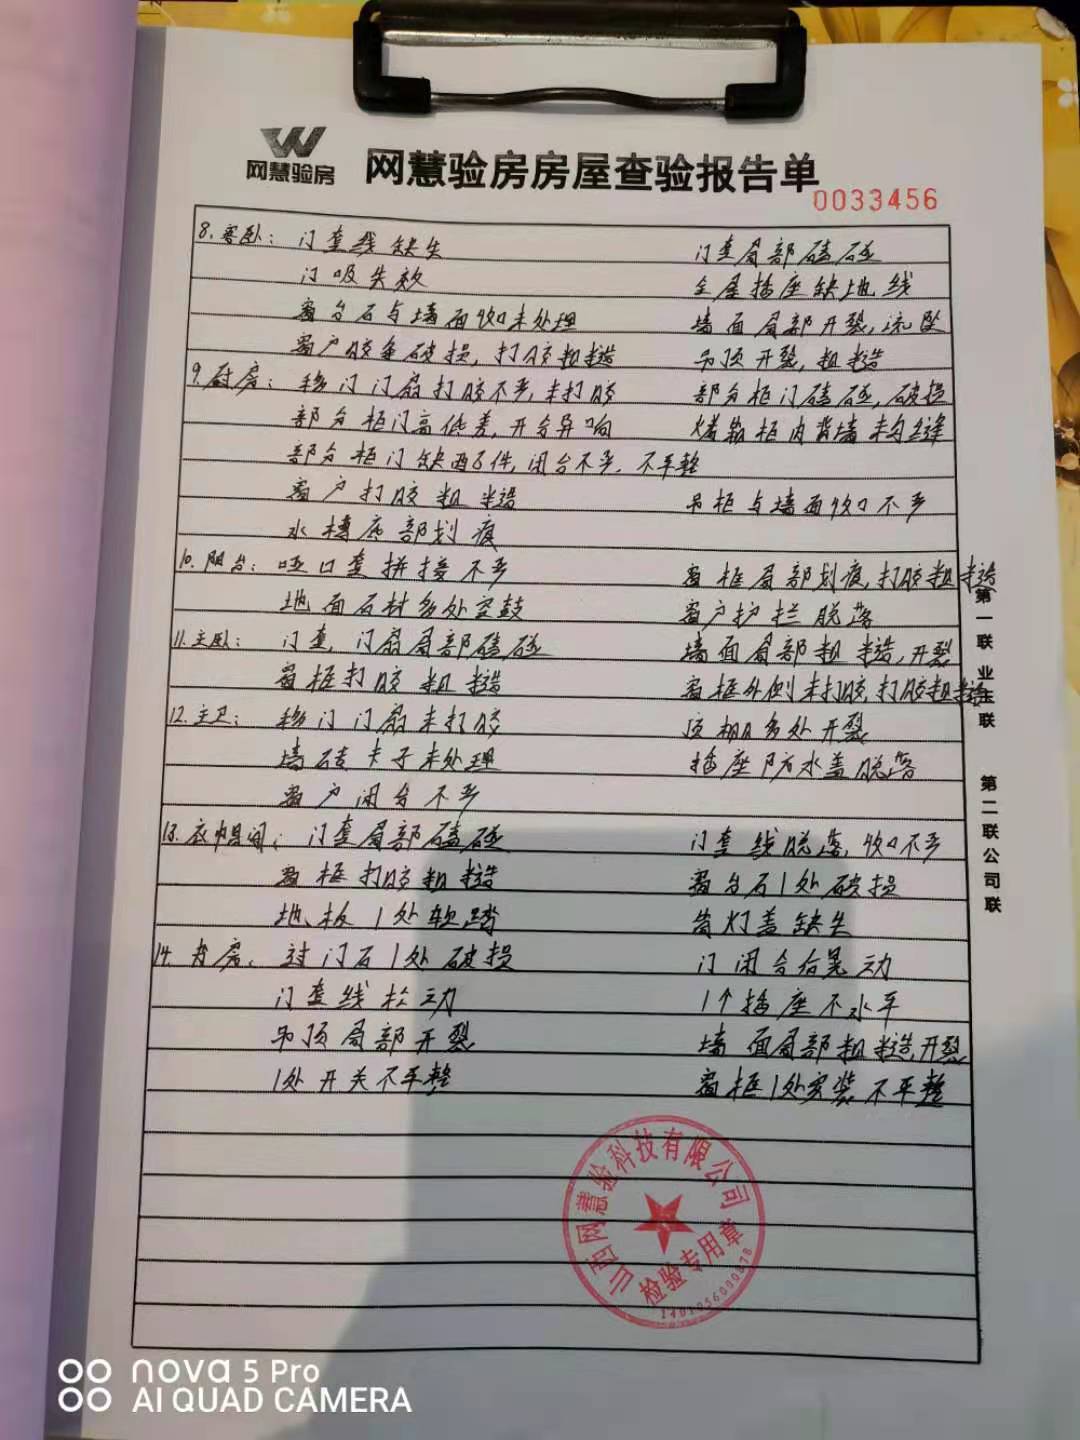 网慧验房
网慧验房房屋查验报告单
0033456
8.客卧: 门套线缺失 门套局部磕碰
门吸失效 全屋插座缺地线
窗台石与墙面收口未处理 墙面局部开裂,流坠
窗户胶条破损,打胶粗糙 吊顶开裂,粗糙
9.厨房: 移门门扇打胶不严,未打胶 部分柜门磕碰,破损
部分柜门高低差,开合异响 烤箱柜内背墙未勾缝
部分柜门缺配件,闭合不严,不平整
窗户打胶粗糙 吊柜与墙面收口不严
水槽底部划痕
10.阳台: 哑口套拼接不严 窗框局部划痕,打胶粗糙
地面石材多处空鼓 窗户护拦脱落
11.主卧: 门套,门扇局部磕碰 墙面局部粗糙,开裂
窗框打胶粗糙 窗框外侧未打胶,打胶粗糙
12.主卫: 移门门扇未打胶 顶棚多处开裂
墙砖卡子未处理 插座防水盖脱落
窗户闭合不严
13.衣帽间: 门套局部磕碰 门套线脱落,收口不严
窗框打胶粗糙 窗台石1处破损
地板1处软踏 筒灯盖缺失
14.书房: 过门石1处破损 门闭合后晃动
门套线松动 1个插座不水平
吊顶局部开裂 墙面局部粗糙,开裂
1处开关不平整 窗框1处安装不平整
第一联业主联 第二联公司联
山西网慧验科技有限公司
检验专用章
nova 5 Pro
AI QUAD CAMERA